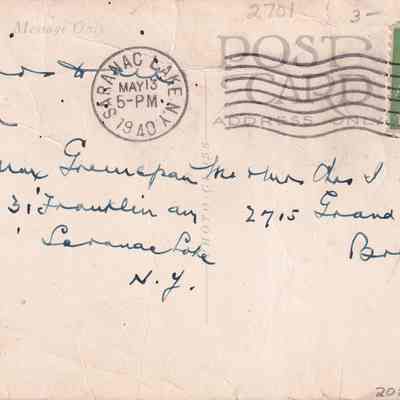 2701
3-
Message Only
POST
CARD
ADDRESS ONLY
SARANAC LAKE N.Y.
MAY 13
5-PM
1940
Max Greenspan
31 Franklin av
Saranac Lake
N.Y.
Mr & Mrs Chas I
2715 Grand
Br
PHOTO
20